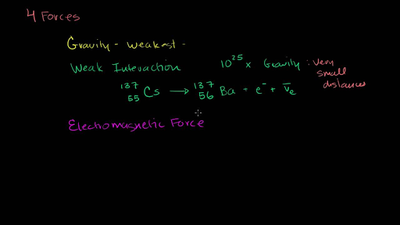 4 Forces
Gravity - Weakest -
Weak Interaction 10²⁵ x Gravity : very small distances
¹³⁷₅₅Cs → ¹³⁷₅₆Ba + e⁻ + ν̅ₑ
Electromagnetic Force